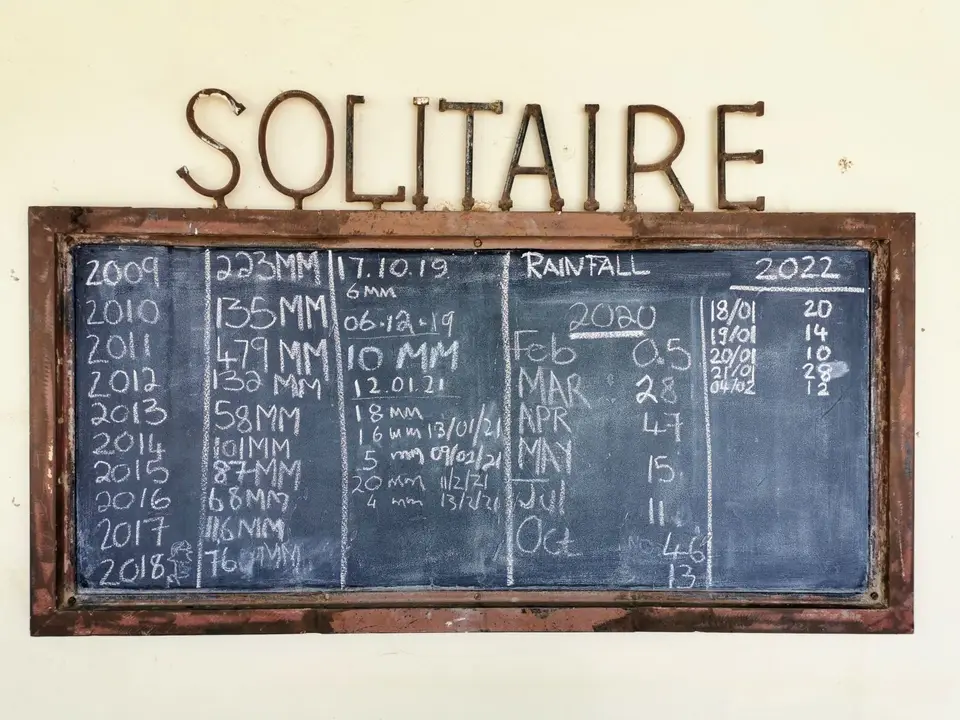 SOLITAIRE
2009 223MM
2010 135MM
2011 479MM
2012 132MM
2013 58MM
2014 101MM
2015 87MM
2016 68MM
2017 116MM
2018 76 MM
17.10.19
6MM
06.12.19
10 MM
12.01.21
18 MM
16 mm 13/01/21
5 mm 09/02/21
20 mm 11/2/21
4 mm 13/2/21
RAINFALL
2020
Feb 0.5
MAR 28
APR 47
MAY 15
Jul 11
Oct 46
13
2022
18/01 20
19/01 14
20/01 10
21/01 28
04/02 12